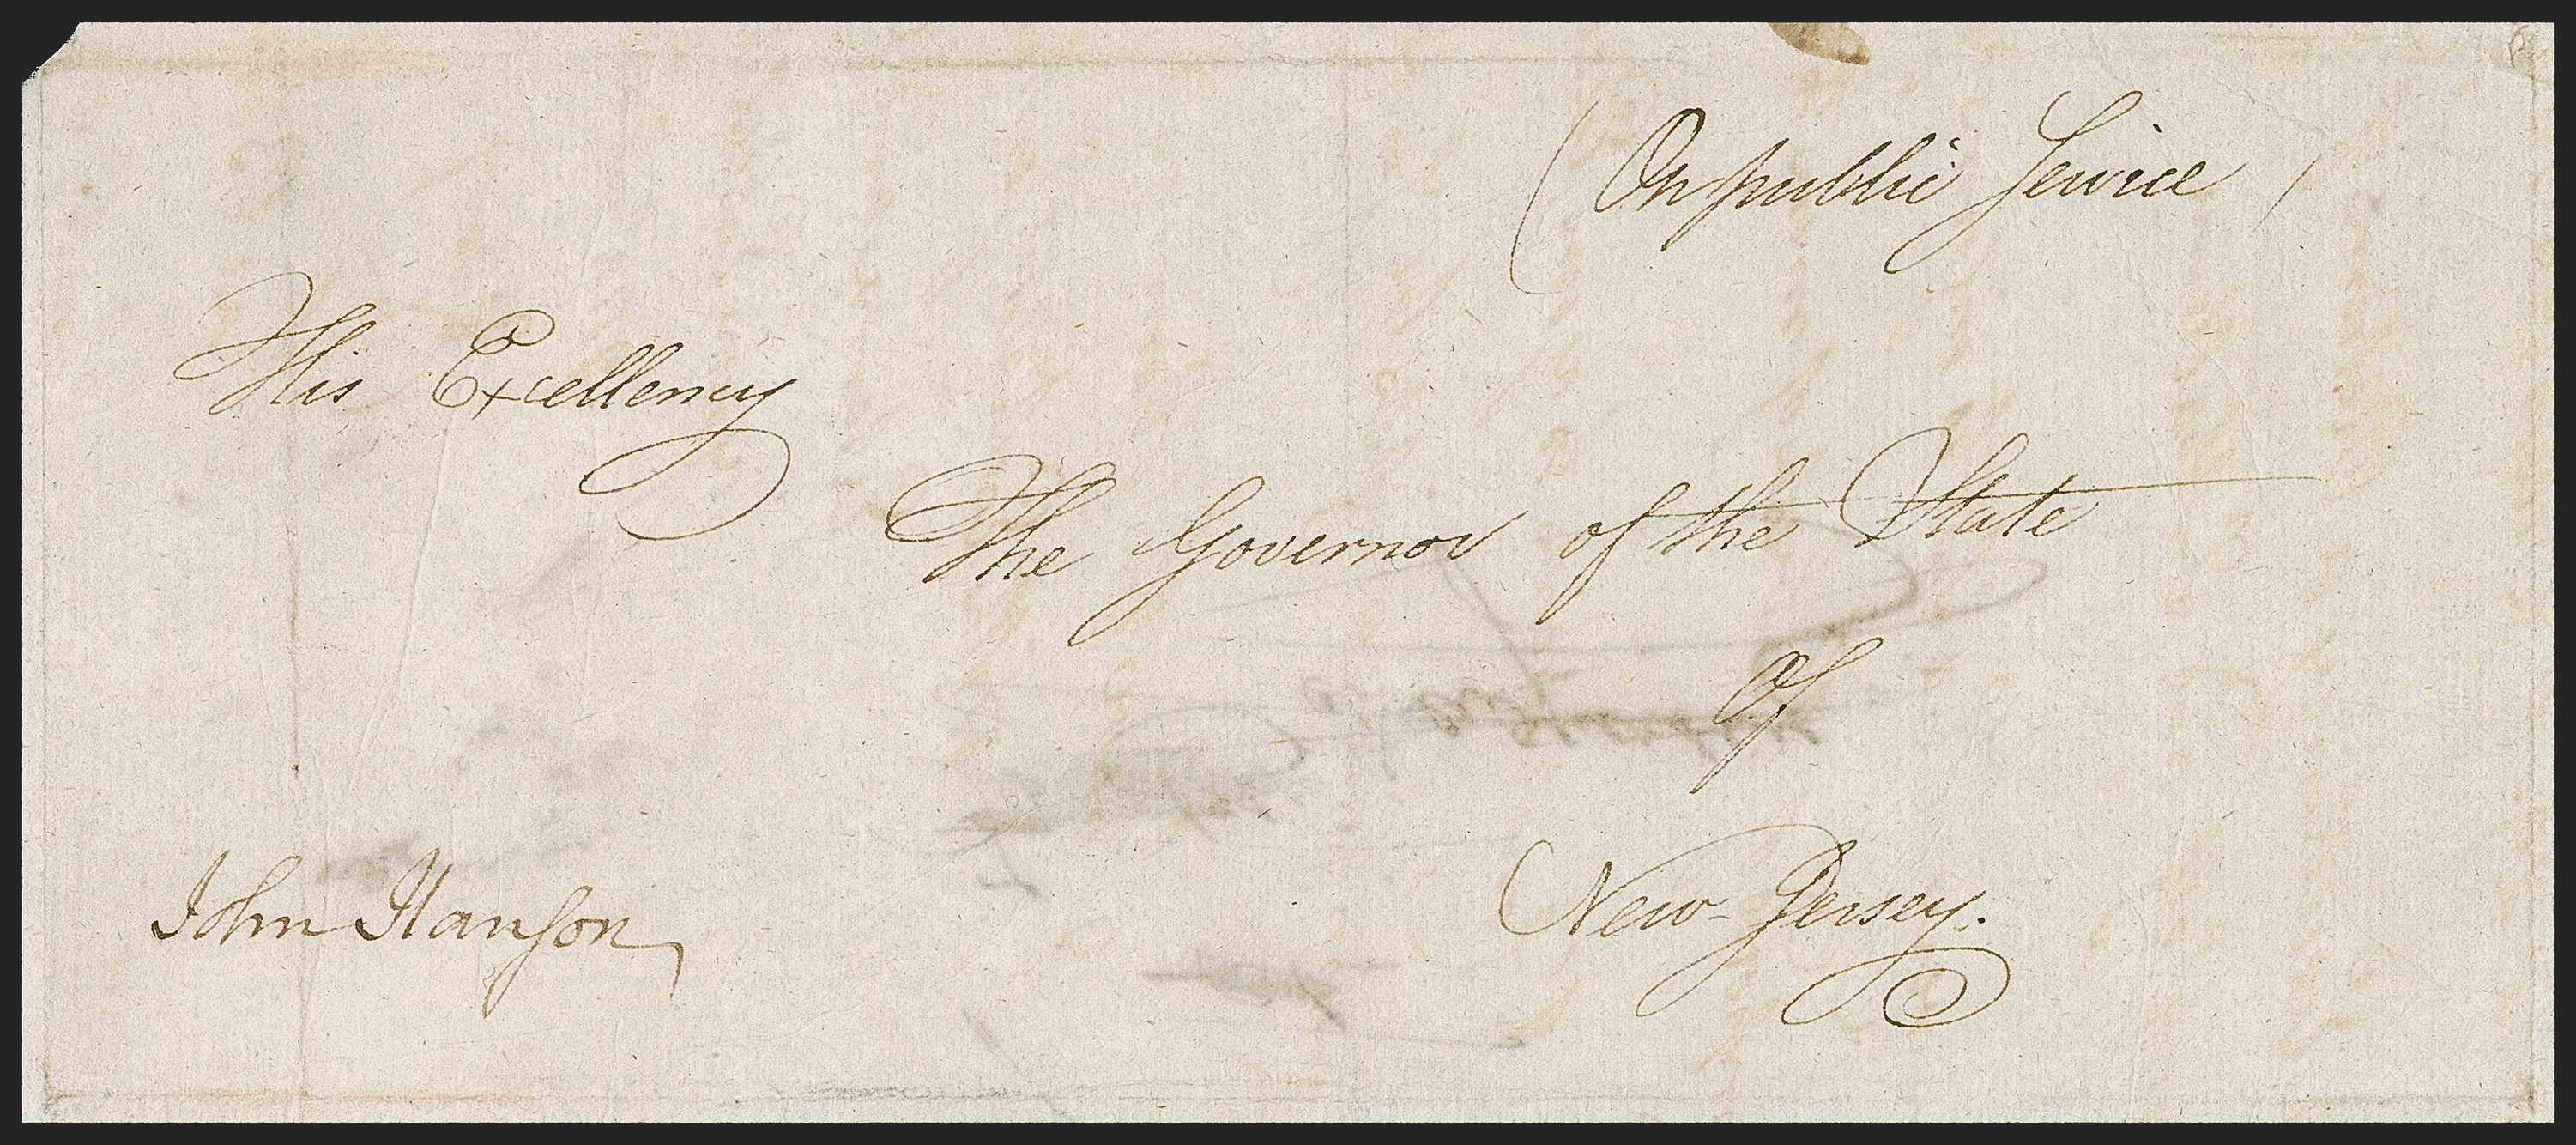 (On public Service)
His Excellency
The Governor of the State
Of
New-Jersey.
John Hanson